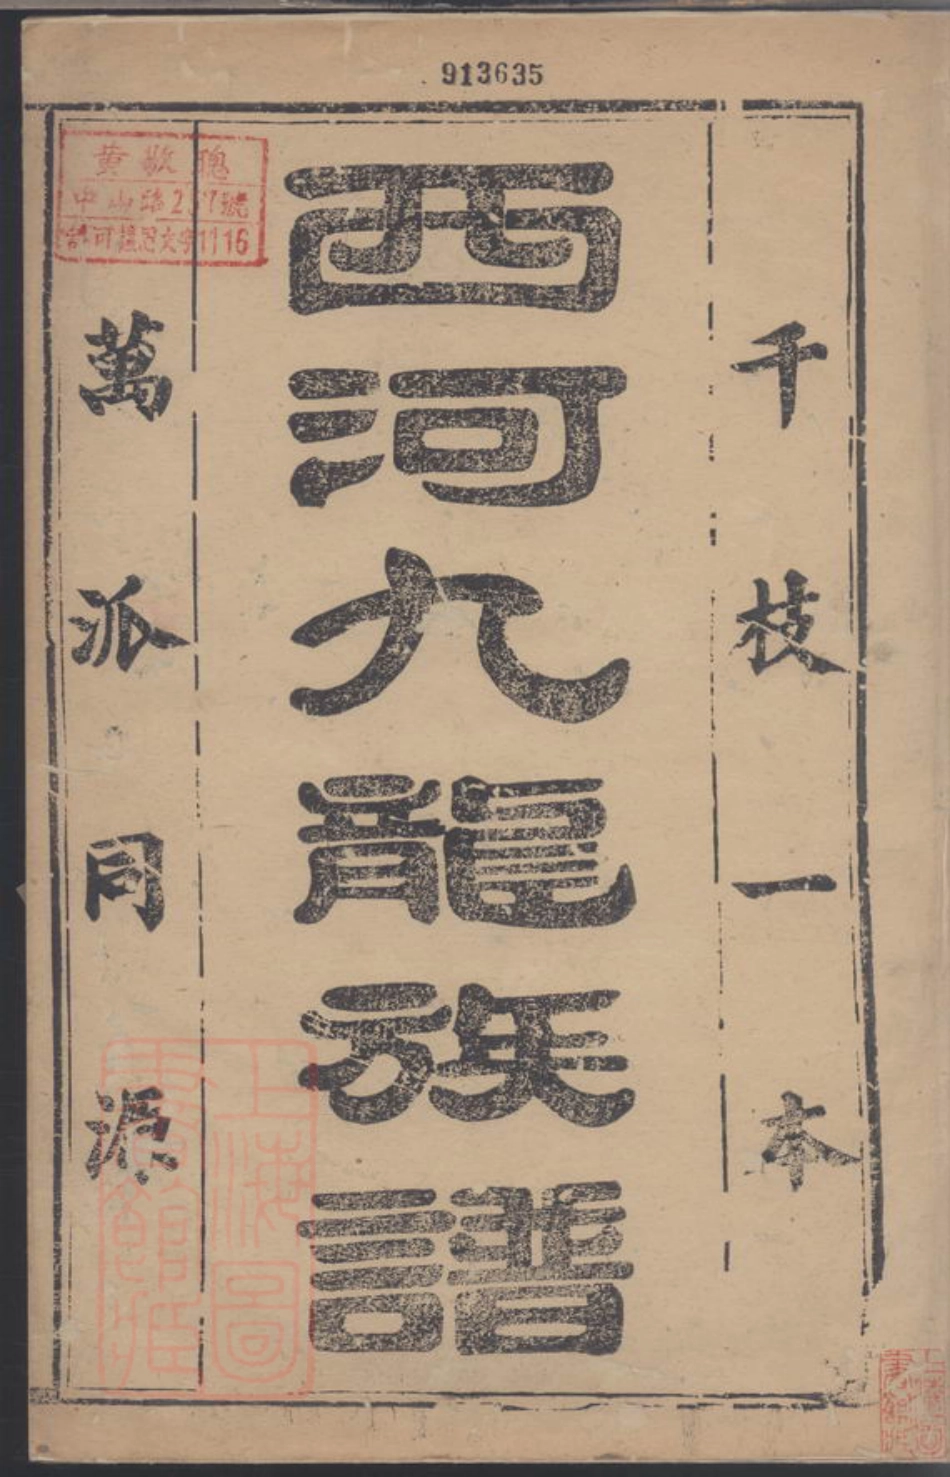 913635
千枝一本
西河九龍族譜
萬派同源
黄敬聰
中山路2 7號
許可證思文字1116
上海圖書館藏
上海圖書館藏